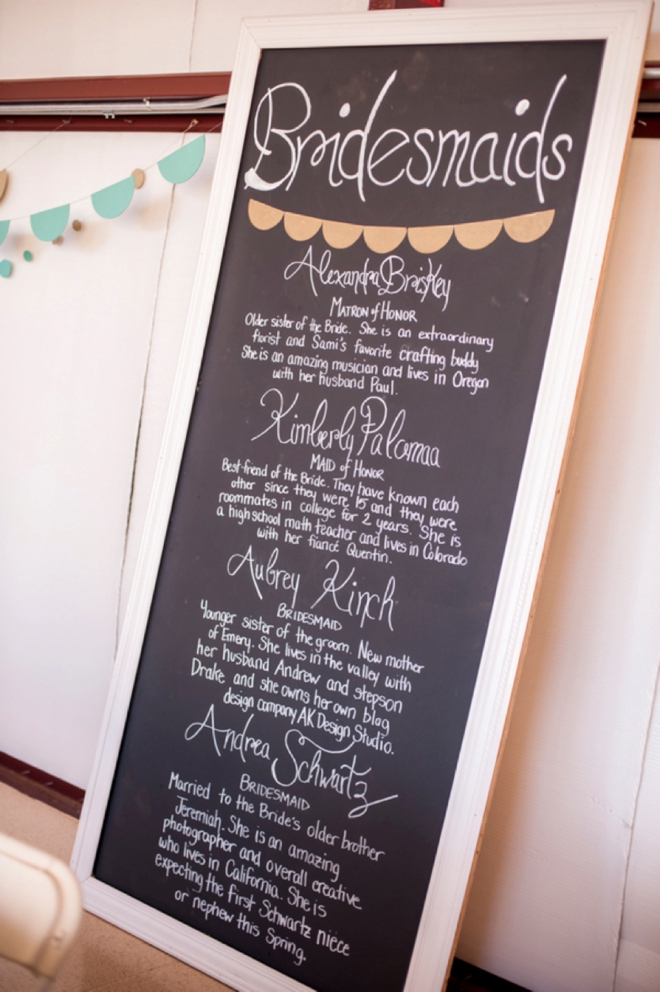 Bridesmaids
Alexandra Briskey
MATRON of HONOR
Older sister of the Bride. She is an extraordinary
florist and Sami's favorite crafting buddy
She is an amazing musician and lives in Oregon
with her husband Paul.
Kimberly Palomaa
MAID of HONOR
Best-friend of the Bride. They have known each
other since they were 15 and they were
roommates in college for 2 years. She is
a high school math teacher and lives in Colorado
with her fiancé Quentin.
Aubrey Kinch
BRIDESMAID
Younger sister of the groom. New mother
of Emery. She lives in the valley with
her husband Andrew and stepson
Drake and she owns her own blog
design company AK Design Studio.
Andrea Schwartz
BRIDESMAID
Married to the Bride's older brother
Jeremiah. She is an amazing
photographer and overall creative
who lives in California. She is
expecting the first Schwartz niece
or nephew this Spring.